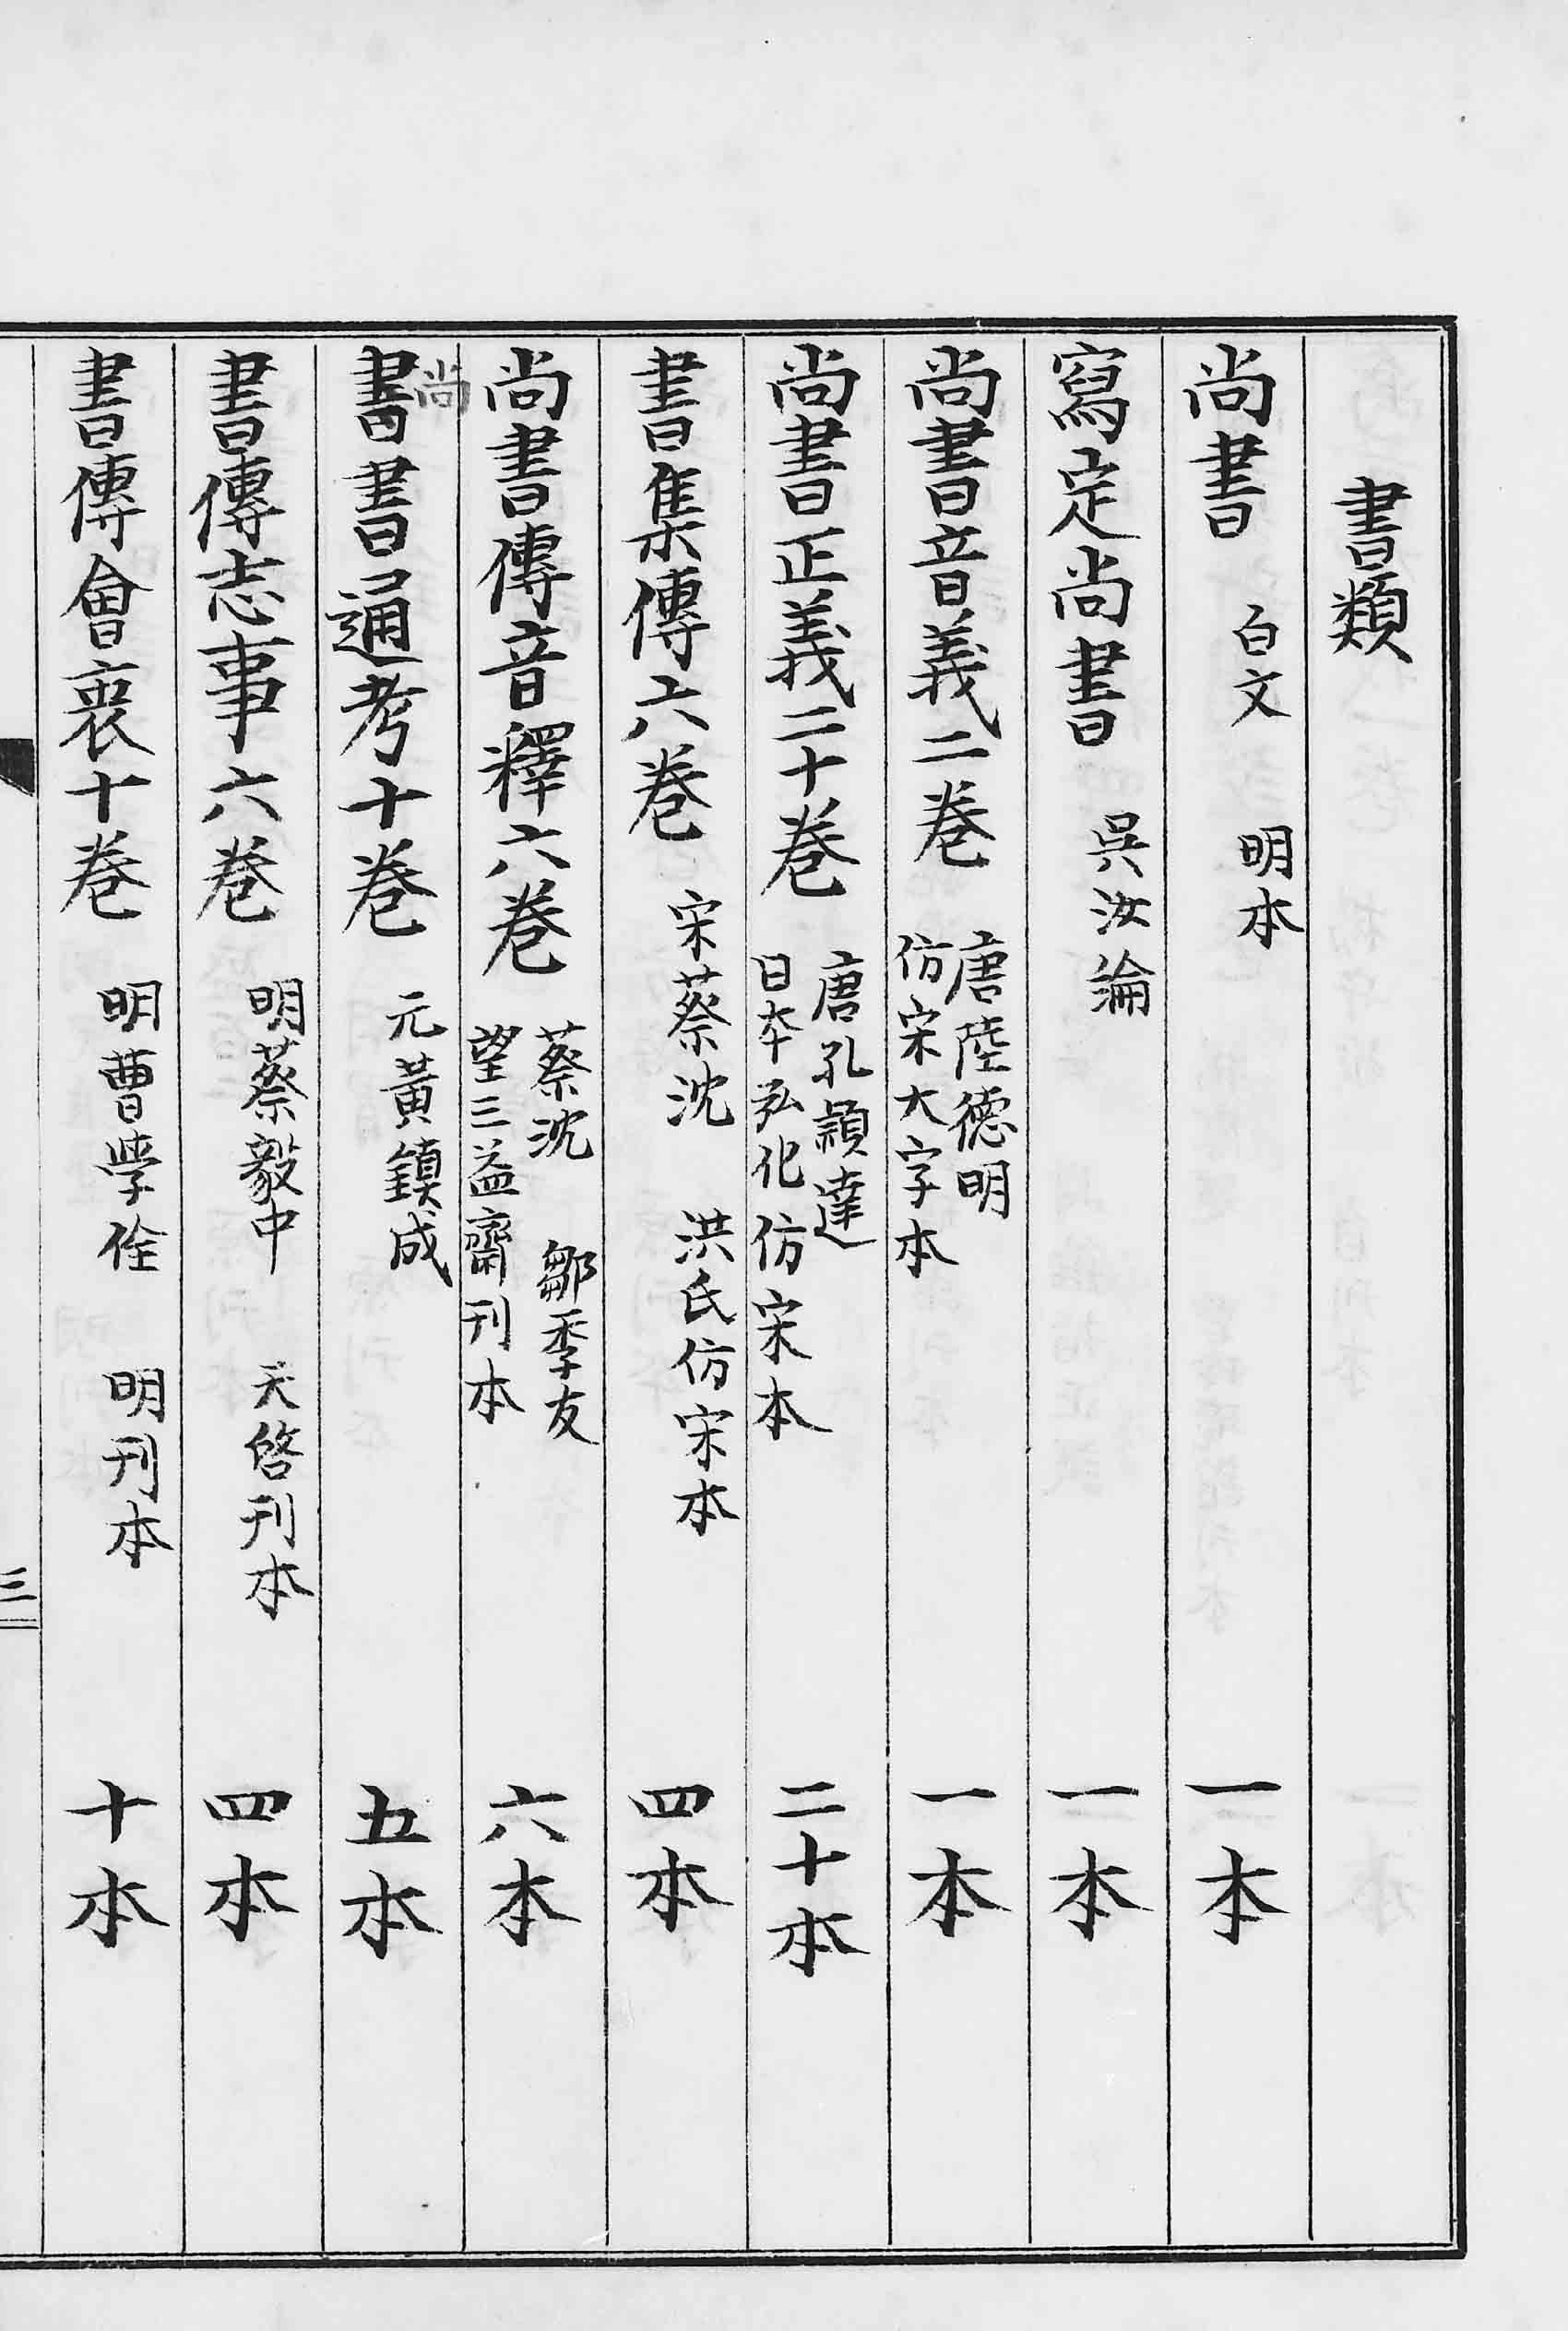 書類
尚書 白文 明本 一本
寫定尚書 吳汝淪 一本
尚書音義二卷 唐陸德明 仿宋大字本 一本
尚書正義二十卷 唐孔穎達 日本弘化仿宋本 二十本
書集傳六卷 宋蔡沈 洪氏仿宋本 四本
尚書傳音釋六卷 蔡沈 鄒季友 望三益齋刊本 六本
尚
書書通考十卷 元黃鎮成 五本
書傳志事六卷 明蔡毅中 天啓刊本 四本
書傳會衷十卷 明曹學佺 明刊本 十本
三